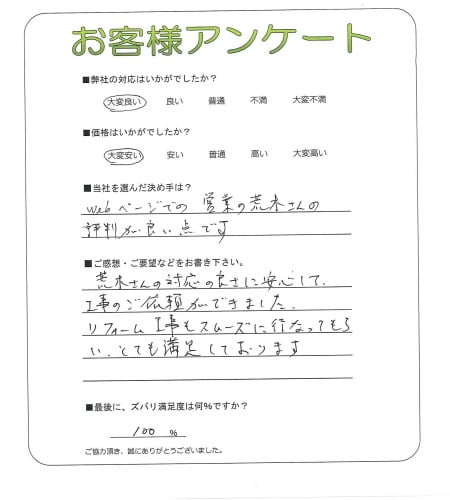 お客様アンケート
■弊社の対応はいかがでしたか?
大変良い 良い 普通 不満 大変不満
■価格はいかがでしたか?
大変安い 安い 普通 高い 大変高い
■当社を選んだ決め手は?
webページでの 営業の荒木さんの
評判が良い点です
■ご感想・ご要望などをお書き下さい。
荒木さんの対応の良さに安心して、
工事のご依頼ができました。
リフォーム工事もスムーズに行なってもら
い、とても満足しております
■最後に、ズバリ満足度は何%ですか?
100 %
ご協力頂き、誠にありがとうございました。